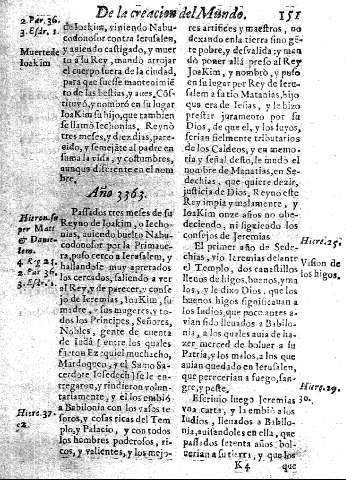 De la creacion del Mundo. 151
2. Par. 36.
3. Esdr. 1.
Muerte de
Ioakim
de Ioakim, viniendo Nabu-
codonosor contra Ierusalem,
y auiendo castigado, y muer
to à su Rey, mandò arrojar
el cuerpo fuera de la ciudad,
para que fuesse mantenimiẽ
to de las bestias, y aues, Cõs-
tituyò, y nombrò en su lugar
IoaKim su hijo, que tambien
se llamò Iechonias, Reynò
tres meses, y diez dias, pare-
cido, y semejãte al padre en
suma la vida, y costumbres,
aunque diferente en el nom
bre.
Año 3363.
Hieron. su
per Matt
& Danie-
lem.
4. Reg 25.
2. Par 36.
3. Esdr. 1.
Passados tres meses de su
Reyno de Ioakim, o Iecho-
nias, sucedio, buelto Nabu-
codonosor por la Primaue-
ra, puso cerco a Ierusalem, y
hallandose muy apretados
los cercados, saliendo a ver
al Rey, y de parecer, y conse
jo de Ieremias, IoaKim, su
madre, y sus mugeres, y to-
dos los Principes, Señores,
Nobles, gente de cuenta
de Iudà (entre los quales
fueron Ezequiel muchacho,
Mardoqueo, y el Sumo Sa-
cerdote Iosedech) se le en-
tregaron, y rindieron volun-
tariamente, y el los embiò
Hiere. 37.
52.
a Babilonia con los vasos te
soros, y cosas ricas del Tem
plo, y Palacio, y con todos
los hombres poderosos, ri-
cos, y valientes, y los mejo-
res artifices y maestros, no
dexando en la tierra sino gẽ-
te pobre, y desvalida; y man
dò poner allà preso al Rey
IoaKim, y nombrò, y puso
en su lugar por Rey de Ierusa-
lem a su tio Matanias, hijo
que era de Iosias, y le hizo
prestar juramento por su
Dios, de que el, y los suyos,
serian fielmente tributarios
de los Caldeos, y en memo-
ria y señal desto, le mudò el
nombre de Matanias, en Se-
dechias, que quiere dezir,
justicia de Dios, Reyno este
Rey impia y malamente, y
IoaKim onze años no obe-
deciendo, ni siguiendo los
consejos de Ieremias.
Hiere. 25.
Vision de
los higos.
El primer año de Sede-
chias, vio Ieremias delante
el Templo, dos canastillos
llenos de higos, buenos, y ma
los, y le dixo Dios, que los
buenos higos significauan a
los Iudios, que poco antes a-
vian sido lleuados a Babilo-
nia, a los quales auia de ha-
zer merced de boluer a su
Patria, y los malos, a los que
auian quedado en Ierusalem,
que perecerian a fuego, san-
gre, y peste.
Hiere. 29.
30.
Escriuio luego Ieremias
vna carta, y la embiò a los
Iudios, lleuados a Babilo-
nia, auisandoles en ella, que
passados setenta años, bol-
uerian a su tierra, y que los
K 4 que